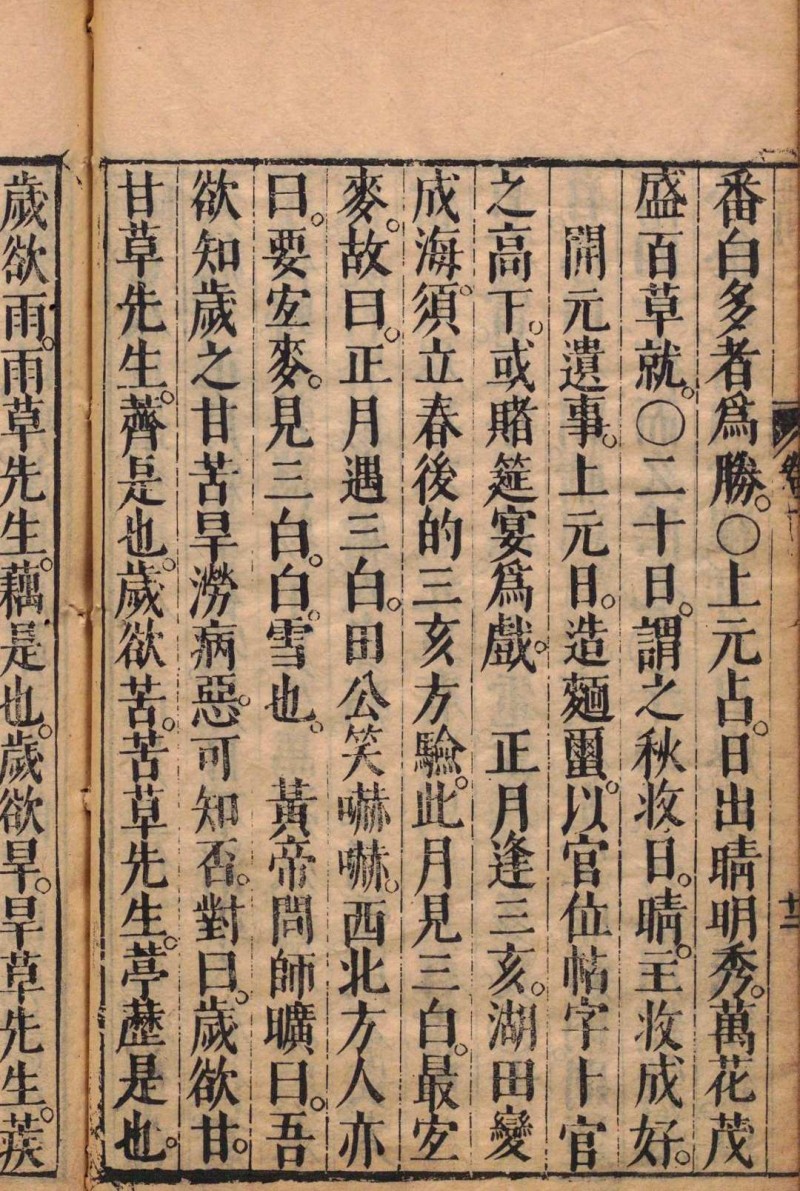 番白多者爲勝。○上元占。日出晴明秀。萬花茂
盛百草就。○二十日。謂之秋收日。晴。主收成好。
開元遺事。上元日。造麵蠒。以官位帖字卜官
之高下。或賭筵宴爲戲。　正月逢三亥。湖田變
成海。須立春後的三亥方驗。此月見三白。最宜
麥。故曰。正月遇三白。田公笑嚇嚇。西北方人亦
曰。要宜麥。見三白。白。雪也。　黃帝問師曠曰。吾
欲知歲之甘苦旱澇病惡。可知否。對曰。歲欲甘。
甘草先生。薺是也。歲欲苦。苦草先生。葶藶是也。
歲欲雨。雨草先生。藕是也。歲欲旱。旱草先生。蒺